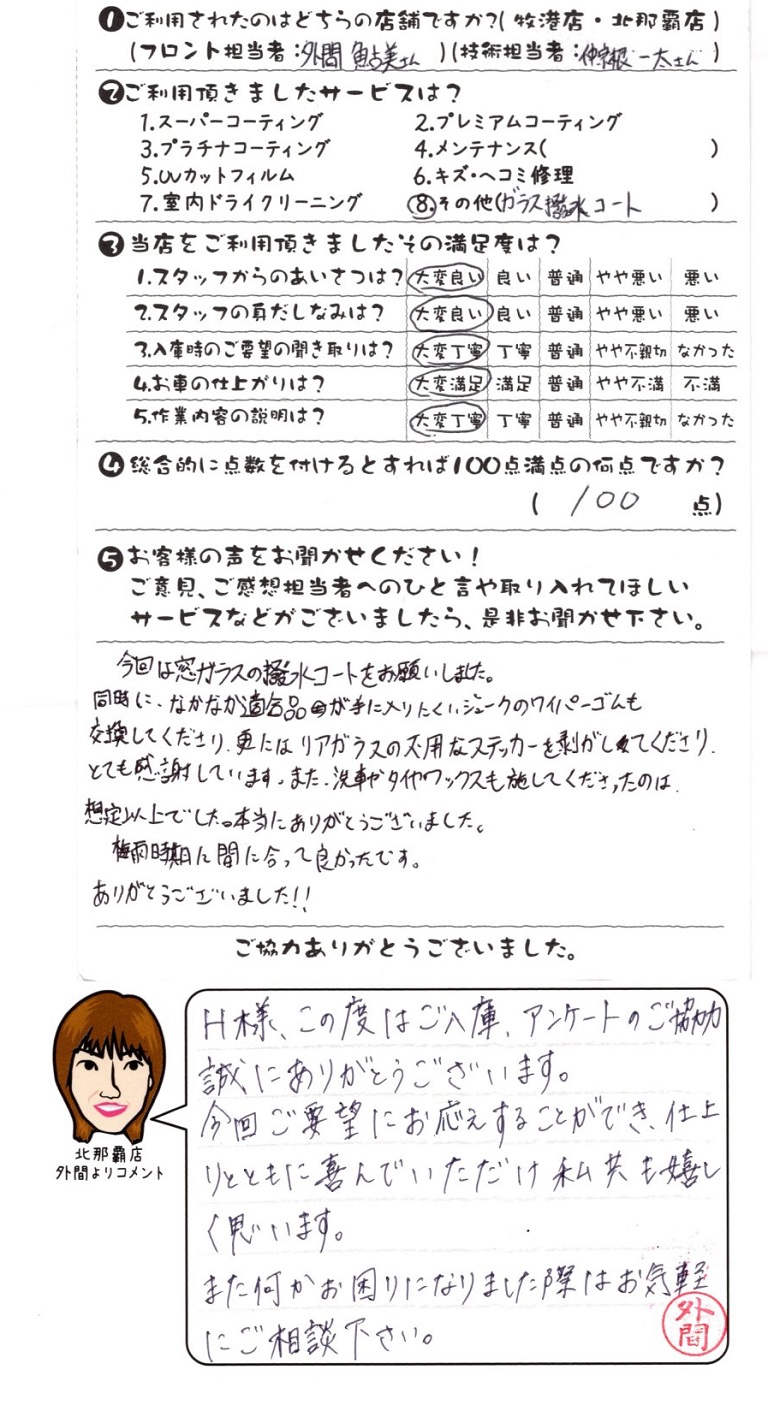 ❶ご利用されたのはどちらの店舗ですか?(牧港店・北那覇店)
(フロント担当者:外間 鮎美さん )(技術担当者:仲宗根 一太さん )
❷ご利用頂きましたサービスは?
1.スーパーコーティング 2.プレミアムコーティング
3.プラチナコーティング 4.メンテナンス( )
5.UVカットフィルム 6.キズ・ヘコミ修理
7.室内ドライクリーニング 8.その他(ガラス撥水コート )
❸当店をご利用頂きましたその満足度は?
1.スタッフからのあいさつは? 大変良い 良い 普通 やや悪い 悪い
2.スタッフの身だしなみは? 大変良い 良い 普通 やや悪い 悪い
3.入庫時のご要望の聞き取りは? 大変丁寧 丁寧 普通 やや不親切 なかった
4.お車の仕上がりは? 大変満足 満足 普通 やや不満 不満
5.作業内容の説明は? 大変丁寧 丁寧 普通 やや不親切 なかった
❹総合的に点数を付けるとすれば100点満点の何点ですか?
( 100 点)
❺お客様の声をお聞かせください!
ご意見、ご感想担当者へのひと言や取り入れてほしい
サービスなどがございましたら、是非お聞かせ下さい。
今回は窓ガラスの撥水コートをお願いしました。
同時に、なかなか適合品が手に入りにくいジュークのワイパーゴムも
交換してくださり、更にはリアガラスの不用なステッカーを剥がしてくださり、
とても感謝しています。また、洗車やタイヤワックスも施してくださったのは、
想定以上でした。本当にありがとうございました。
梅雨時期に間に合って良かったです。
ありがとうございました!!
ご協力ありがとうございました。
H様、この度はご入庫、アンケートのご協力
誠にありがとうございます。
今回ご要望にお応えすることができ、仕上
りとともに喜んでいただけ私共も嬉し
く思います。
また何かお困りになりました際はお気軽
にご相談下さい。
外間
北那覇店
外間よりコメント